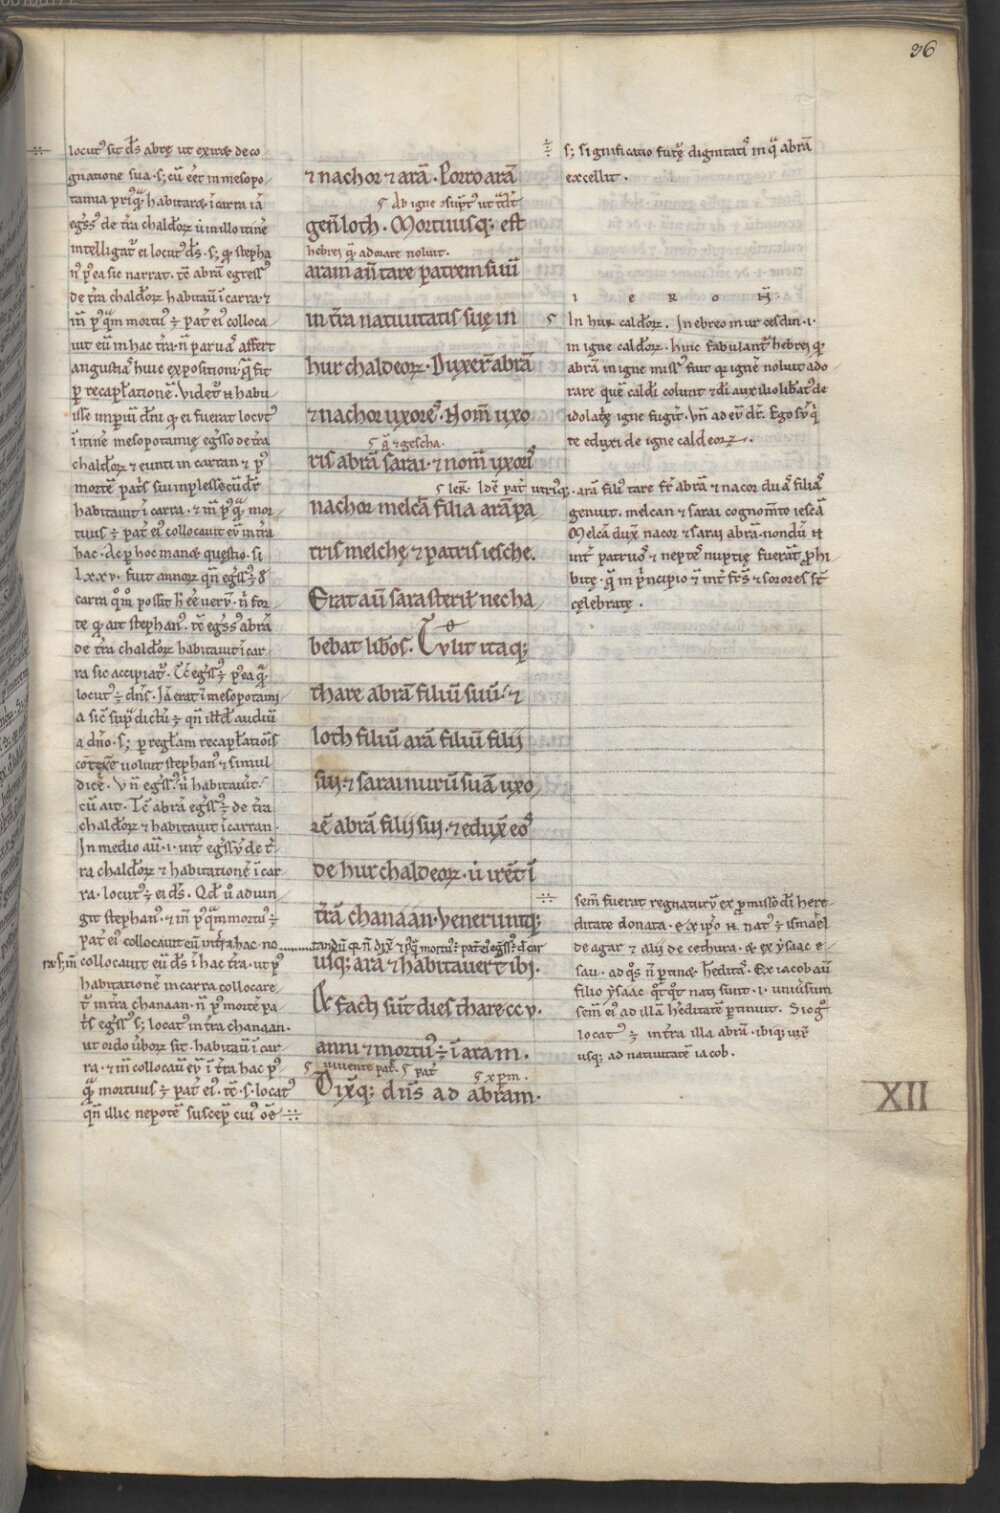 36
locut᷒ sit d̄s abrę ut exiret de co
gnatione sua · s; cū ēēt in mesopo
tamia priꝰqᷓ habitaret ī carra iā
egr̄s᷒ de t̄ra chald̄oꝝ
intelligat᷒ ei locut᷒ d̄s · s; qꝫ stepha
n᷒ p᷒ ea sic narrat · tc̄ abrā egress᷒
de t̄ra chald̄oꝝ habitauit ī carra · ⁊
īn p᷒qᷓm mortu᷒ ÷ pat̄ ei᷒ colloca
uit eū in hac t̄ra · n̄ paruā affert
angustiā huic expositioni · qᷓ fit
ꝑ recapl̄ationē · Videt᷒ n̄ habu
isse imꝑiū dn̄i qꝫ ei fuerat locut᷒
ī itinē mesopotamię eḡsso de t̄ra
chald̄oꝝ ⁊ eunti in carran ⁊ p᷒
mortē pat̄s sui
habitauit ī carra · ⁊ īn p᷒qᷓ mor
tuus ÷ pat̄ ei᷒ collocauit eū in t̄ra
hac · Ac ꝑ hoc manet questio · si
lxxv · fuit annoꝝ qn̄ egr̄s᷒ ÷ d̄
carra qōm possit h̄ ēē uerū · n̄ for
te qꝫ ait stephan᷒ · tc̄ egr̄ss᷒ abrā
de t̄ra chald̄oꝝ habitauit ī car
ra sic accipiat᷒ · Tc̄ egr̄ss᷒ ÷ p᷒ ea qᷓ
locut᷒ ÷ dn̄s · Iā erat ī mesopotami
a sic̄ supᷓ dictū ÷ qn̄ illd̄ audiuit
a dn̄o · s; ꝑ regl̄am recapl̄ationis
cōtexē uoluit stephan᷒ ⁊ simul
dicē · Vn̄ egr̄ss᷒ ⁊ ubi habitauit
cū ait · Tc̄ abrā egr̄ss᷒ ÷ de t̄ra
chald̄oꝝ ⁊ habitauit ī carran ·
In medio aū · i · int̄ egr̄ssū de t̄
ra chald̄oꝝ ⁊ habitationē ī car
ra · locut᷒ ÷ ei d̄s · Qd̄ u᷒o adiun
git stephan᷒ · ⁊ īn p᷒qᷓm mortu᷒ ÷
pat̄ ei᷒ collocauit eū in t̄ra hac · no
collocauit eū d̄s ī hac t̄ra · ut p᷒
habitationē in carra collocare
t᷒ in t̄ra chanaan · n̄ p᷒ mortē pa
t̄s egr̄ss᷒ s; locat᷒ in t̄ra chanaan ·
ut ordo uerboꝝ sit · habitauit ī car
ra · ⁊ īn collocauit eū ī t̄ra hac p᷒
qᷓ mortuus ÷ pat̄ ei᷒ · tc̄ · s · locat᷒
qn̄ illic nepotē suscep̄ cui᷒ om̄e
⁊ nachor ⁊ arā · Porro arā
Ab igne ut
gen̄ loth · Mortuusq; est
hebrei qᷓ adorare noluit ·
aram an̄ tare patrem suū
in t̄ra natiuitatis suę in
hur chaldeoꝝ · Duxer̄ abrā
⁊ nachor uxores · Nom̄ uxo
qᷓ ⁊ gescha ·
ris abrā sarai · ⁊ nom̄ uxoris
Ier̄ · Idē pat̄ utriq; ·
nachor melcā filia arā pa
tris melchę ⁊ patris iesche ·
Erat aū sara steril̄ nec ha
bebat lib̄os · Tulit itaq;
thare abrā filiū suū · ⁊
loth filiū arā filiū filii
sui · ⁊ sarai nurū suā uxo
rē abrā filii sui · ⁊ eduxit eos
de hur chaldeoꝝ · ut irēt ī
t̄rā chanáan · Veneruntq;
usq; arā ⁊ habitauer̄t ibi ·
Et facti sūt dies thare cc v ·
anni ⁊ mortu᷒ ÷ ī aram ·
uiuente pat̄ · pat̄ xpm ·
Dixitq; dn̄s ad abram ·
s; significatio futurę dignitatis in qᷓ abrā
excellit ·
I E R O N̄ ·
In hur caldeoꝝ · In ebreo in ur cesdim · i ·
in igne caldeoꝝ · huic fabulant᷒ hebrei qꝫ
abrā in igne miss᷒ fuit qꝫ ignē noluit ado
rare quē caldei colunt ⁊ di auxilio libat᷒ de
idolatrię igne fugit · Vn̄ ad eū dr̄ · Ego sū qi
te eduxi de igne caldeoꝝ ·
arā fili᷒ tare fr̄ abrā ⁊ nacor duas filias
genuit · melcan ⁊ sarai cognom̄to iescā
Melcā duxit nacor ⁊ sarai abrā · nondū n̄
int̄ patruos ⁊ neptes nuptię fuerāt ꝓhi
bitę · qᷓ in p̄ncipio ⁊ int̄ fr̄s ⁊ sorores st̄
cęlebratę ·
sem̄ fuerat regnaturū ex ꝓmisso di here
ditate donata · ex ipso n̄ · nat᷒ ÷ ismael
de agar ⁊ alii de cethura · ⁊ ex ysaac e
sau · ad q᷒s n̄ ꝑtinet heditas · Ex iacob aū
filio ysaac qt̄qt̄ nati sunt · i · uniūsum
sem̄ ei᷒ ad illā hēditatē ꝑtinuit · Sic g᷒
locat᷒ ÷ in t̄ra illa abrā · ibiq; uix̄
usq; ad natiuitatē iacob ·
XII